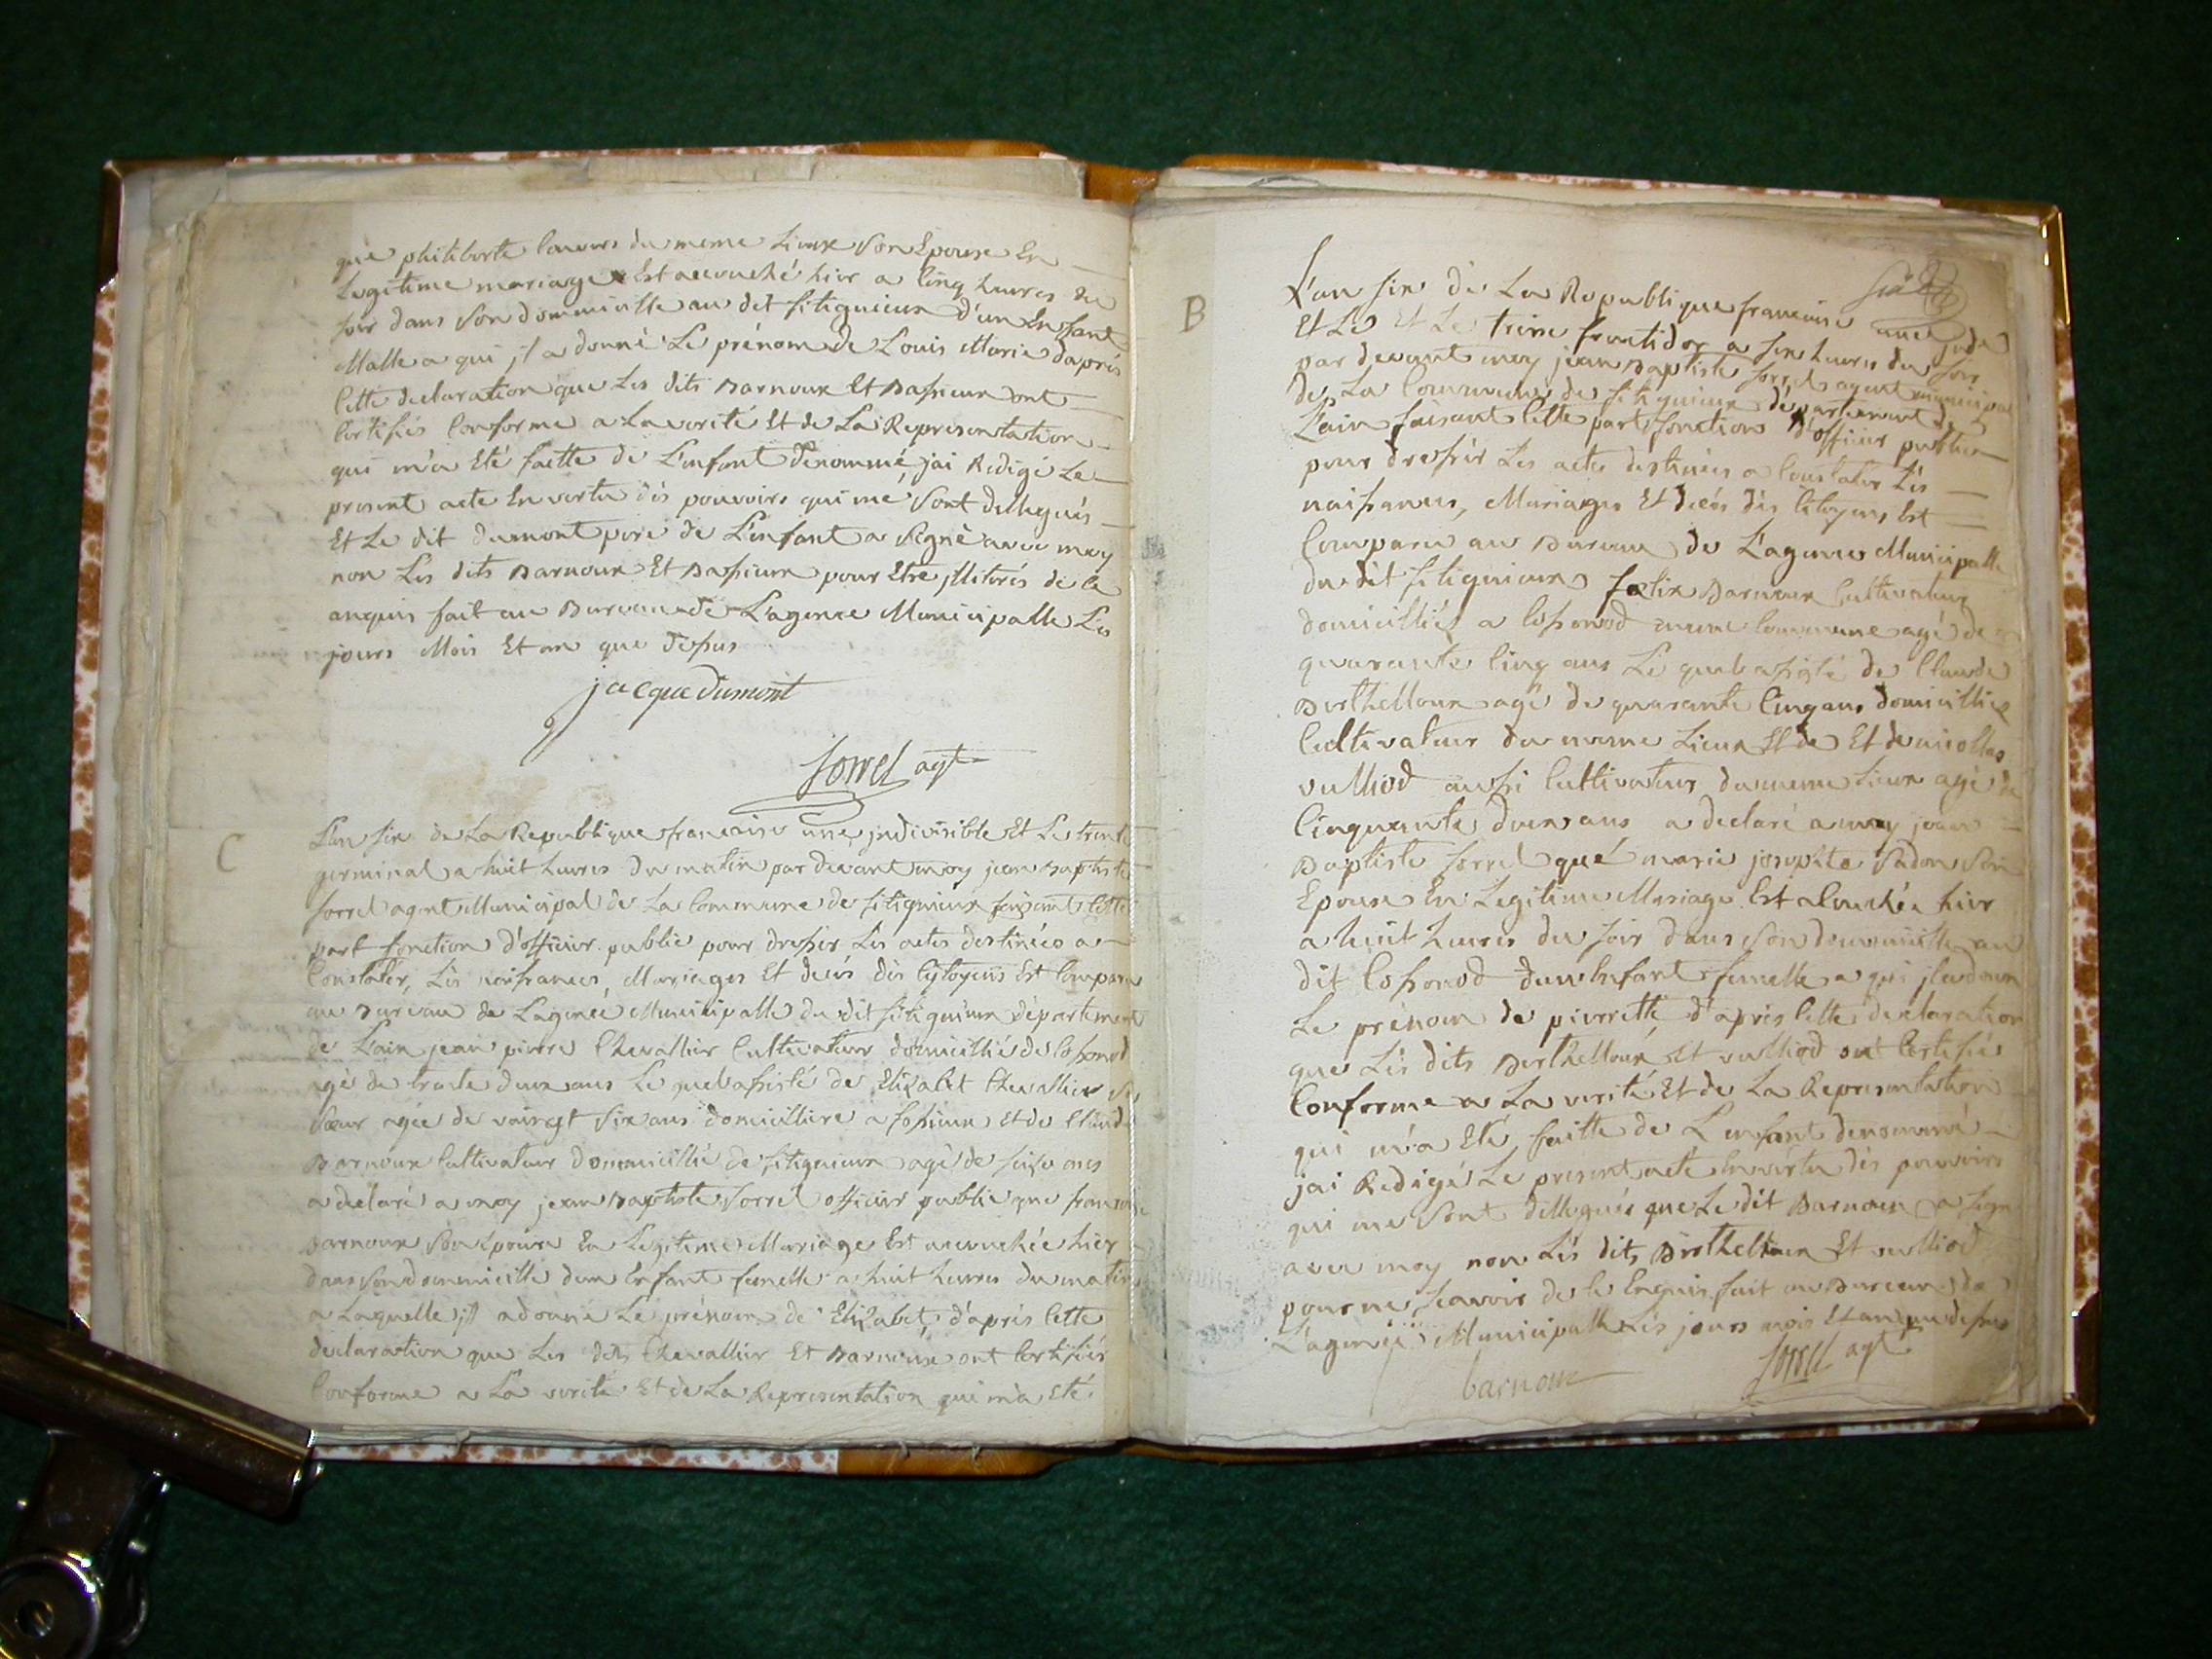 que philiberte du meme Lieux Son Epouse En
Legitime mariage Est accouché hier a Cinq heures du
soir dans Son dommicille au dit sitignieux d'un Enfant
Malle a qui jl a donné Le prénom de Louis Marie daprés
Cette declaration que Les dits Barnoux Et Bassieux ont
Certifiés Conforme a La verité Et de La Representation
qui m'a Eté faitte de L'enfant denommé, jai Redigé Le
present acte En vertu dès pouvoirs qui me Sont dellegués
Et Le dit dumont pere de L'enfant a Signé avec moy
non Les dits Barnoux Et Bassieux pour Etre jlliterés de ce
anquis fait au Bureau de L'agence Municipalle Les
jours Mois Et an que dessus
jacque dumont
sorrel agt
C
L'an six de La Republique francaise une jndivisible Et Le trente
germinal a huit heures du matin par devant moy jean Baptiste
sorrel agent Municipal de La Commune de sitignieux faisant Cette
part fonction d'officier public pour dresser Les actes destinées a
Constater, Les naissances, Mariages Et decés dès Cytoyens Est Comparu
au Bureau de Lagence Municipalle du dit sitignieux département
de L'ain jean pierre Chevallier Cultivateur domicillié de Cossonod
agé de trante deux ans Le quel assisté de Elizabet Chevallier Sa
Sœur agée de vaingt Six ans domicilliere a Et de Claude
Barnoux Cultivateur dommicillié de sitignieux agé de ans
a declaré a moy jean Baptiste Sorrel officier public que francoise
Barnoux Son Epouse En Legitime Mariage Est accouchée hier
dans Son dommicille dun Enfant femelle a huit heures du matin
a Laquelle jl a donné Le prénom de Elizabet, d'aprés Cette
declaration que Les dits Chevallier Et Barnoux ont Certifiés
Conforme a La verité Et de La Representation qui m'a Eté
B
L'an six de La Republique francaise une jndi
Et Le Et Le treize fructidor a six heures du soir
par devant moy jean Baptiste sorrel agent municipal
de La Commune de sitignieux département de
L'ain faisant Cette part fonction d'officier public
pour dressér Les actes destinées a Constater Les
naissances, Mariages Et décés dès Citoyens Est
Comparu au Bureau de L'agence Municipalle
du dit sitignieux fœlix Barnoux Cultivateur
domicillié a Cossonod meme Commune agé de
quarante Cinq ans Le quel assisté de Claude
Berthelloux agé de quarante Cinq ans domicillié
Cultivateur du meme Lieux Et de Et de nicollas
vulliod aussi Cultivateur du meme Lieux agé de
Cinquante deux ans a declaré a moy jean
Baptiste sorrel qué marie josephte Son
Epouse En Legitime Mariage Est accouchée hier
a huit heures du soir dans Son dommicille au
dit Cossonod dun Enfant femelle a qui jl a donné
Le prénom de pierrette, d'aprés Cette declaration
que Lès dits Berthelloux Et vulliod ont Certifiés
Conforme a La verité Et de La Representation
qui m'a Eté faitte de L'enfant denommé
jai Redigé Le present acte En vértu dès pouvoirs
qui me Sont dellegués que Le dit Barnoux a signé
avec moy non Lés dits Berthelloux Et vulliod
pour ne scavoir de Ce Enquis fait au Bureau de
L'agence Municipalle Lés jours mois Et an que dessus
barnoux
sorrel agt